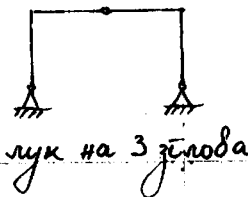 лук на 3 зглоба